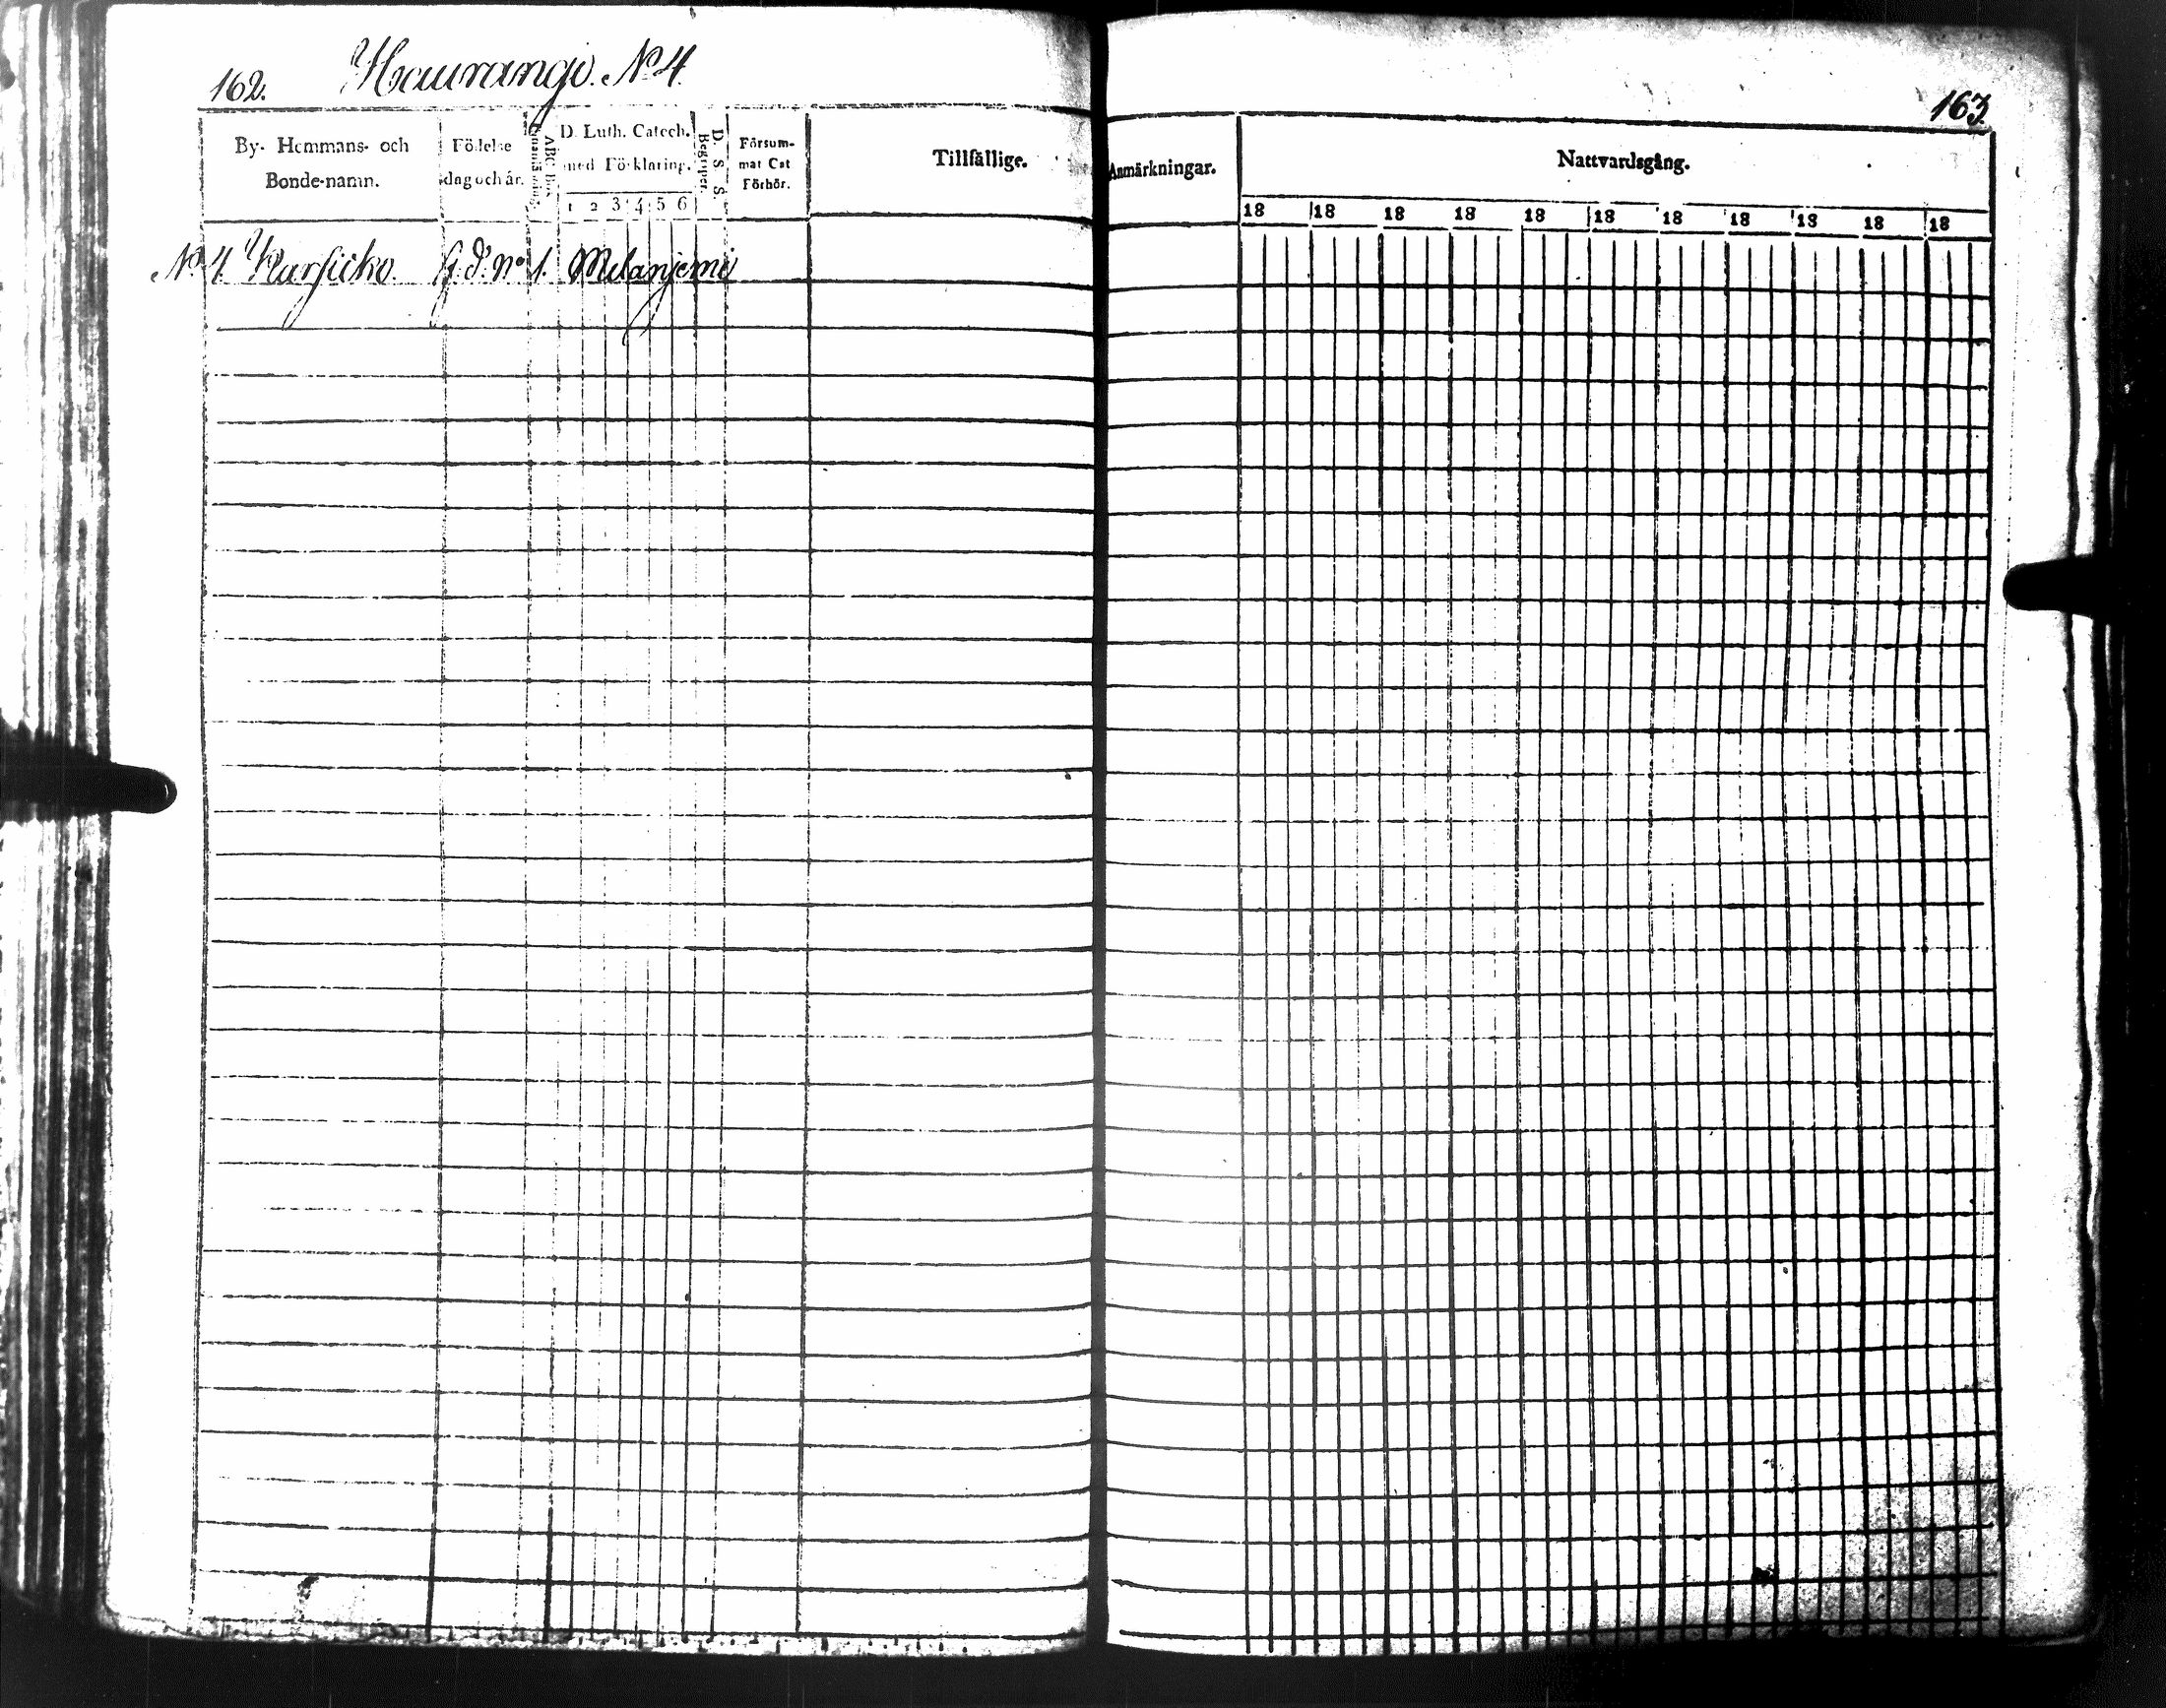 162. Haurangi. N:4.
163.
By- Hemmans- och
Bonde-namn.
Födelse
dag och år.
ABC Bok
D. Luth. Catech.
med Förklaring.
1 2 3 4 5 6
D. S. S.
Begriper.
Försum-
mat Cat
Förhör.
Tillfällige.
Anmärkningar.
Nattvardsgång.
18 18 18 18 18 18 18 18 18 18 18
N:4. Karsicko. f.d. n:o 1. Metanjemi